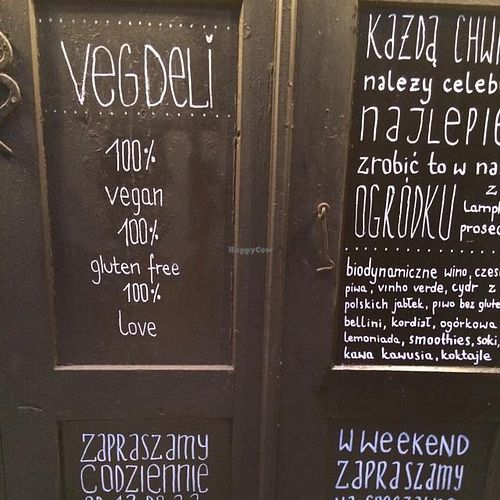 VEGDELI
100%
vegan
100%
gluten free
100%
love
ZAPRASZAMY
CODZIENNIE
KAŻDĄ
należy
NAJLEPIE
zrobić to w
z
OGRÓDKU
biodynamiczne wino,
piwa, vinho verde, cydr z
polskich jabłek, piwo bez
bellini, kordiał, ogórkowa
lemoniada, smoothies, soki,
kawa kawusia, koktajle
W WEEKEND
ZAPRASZAMY
HappyCow